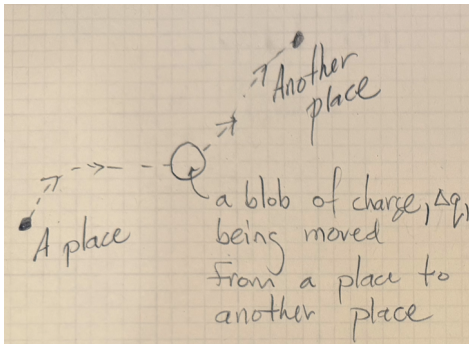 Another
place
A place
a blob of charge, Δq,
being moved
from a place to
another place